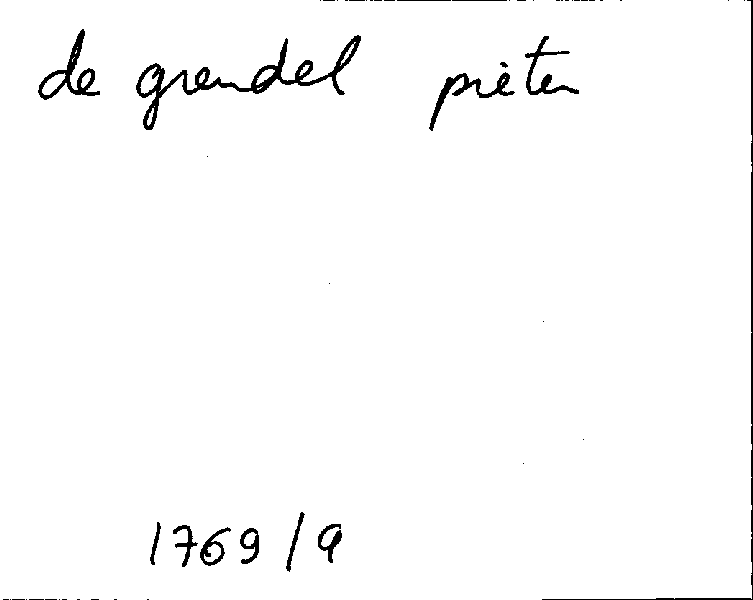 de grendel pieter
1769/9